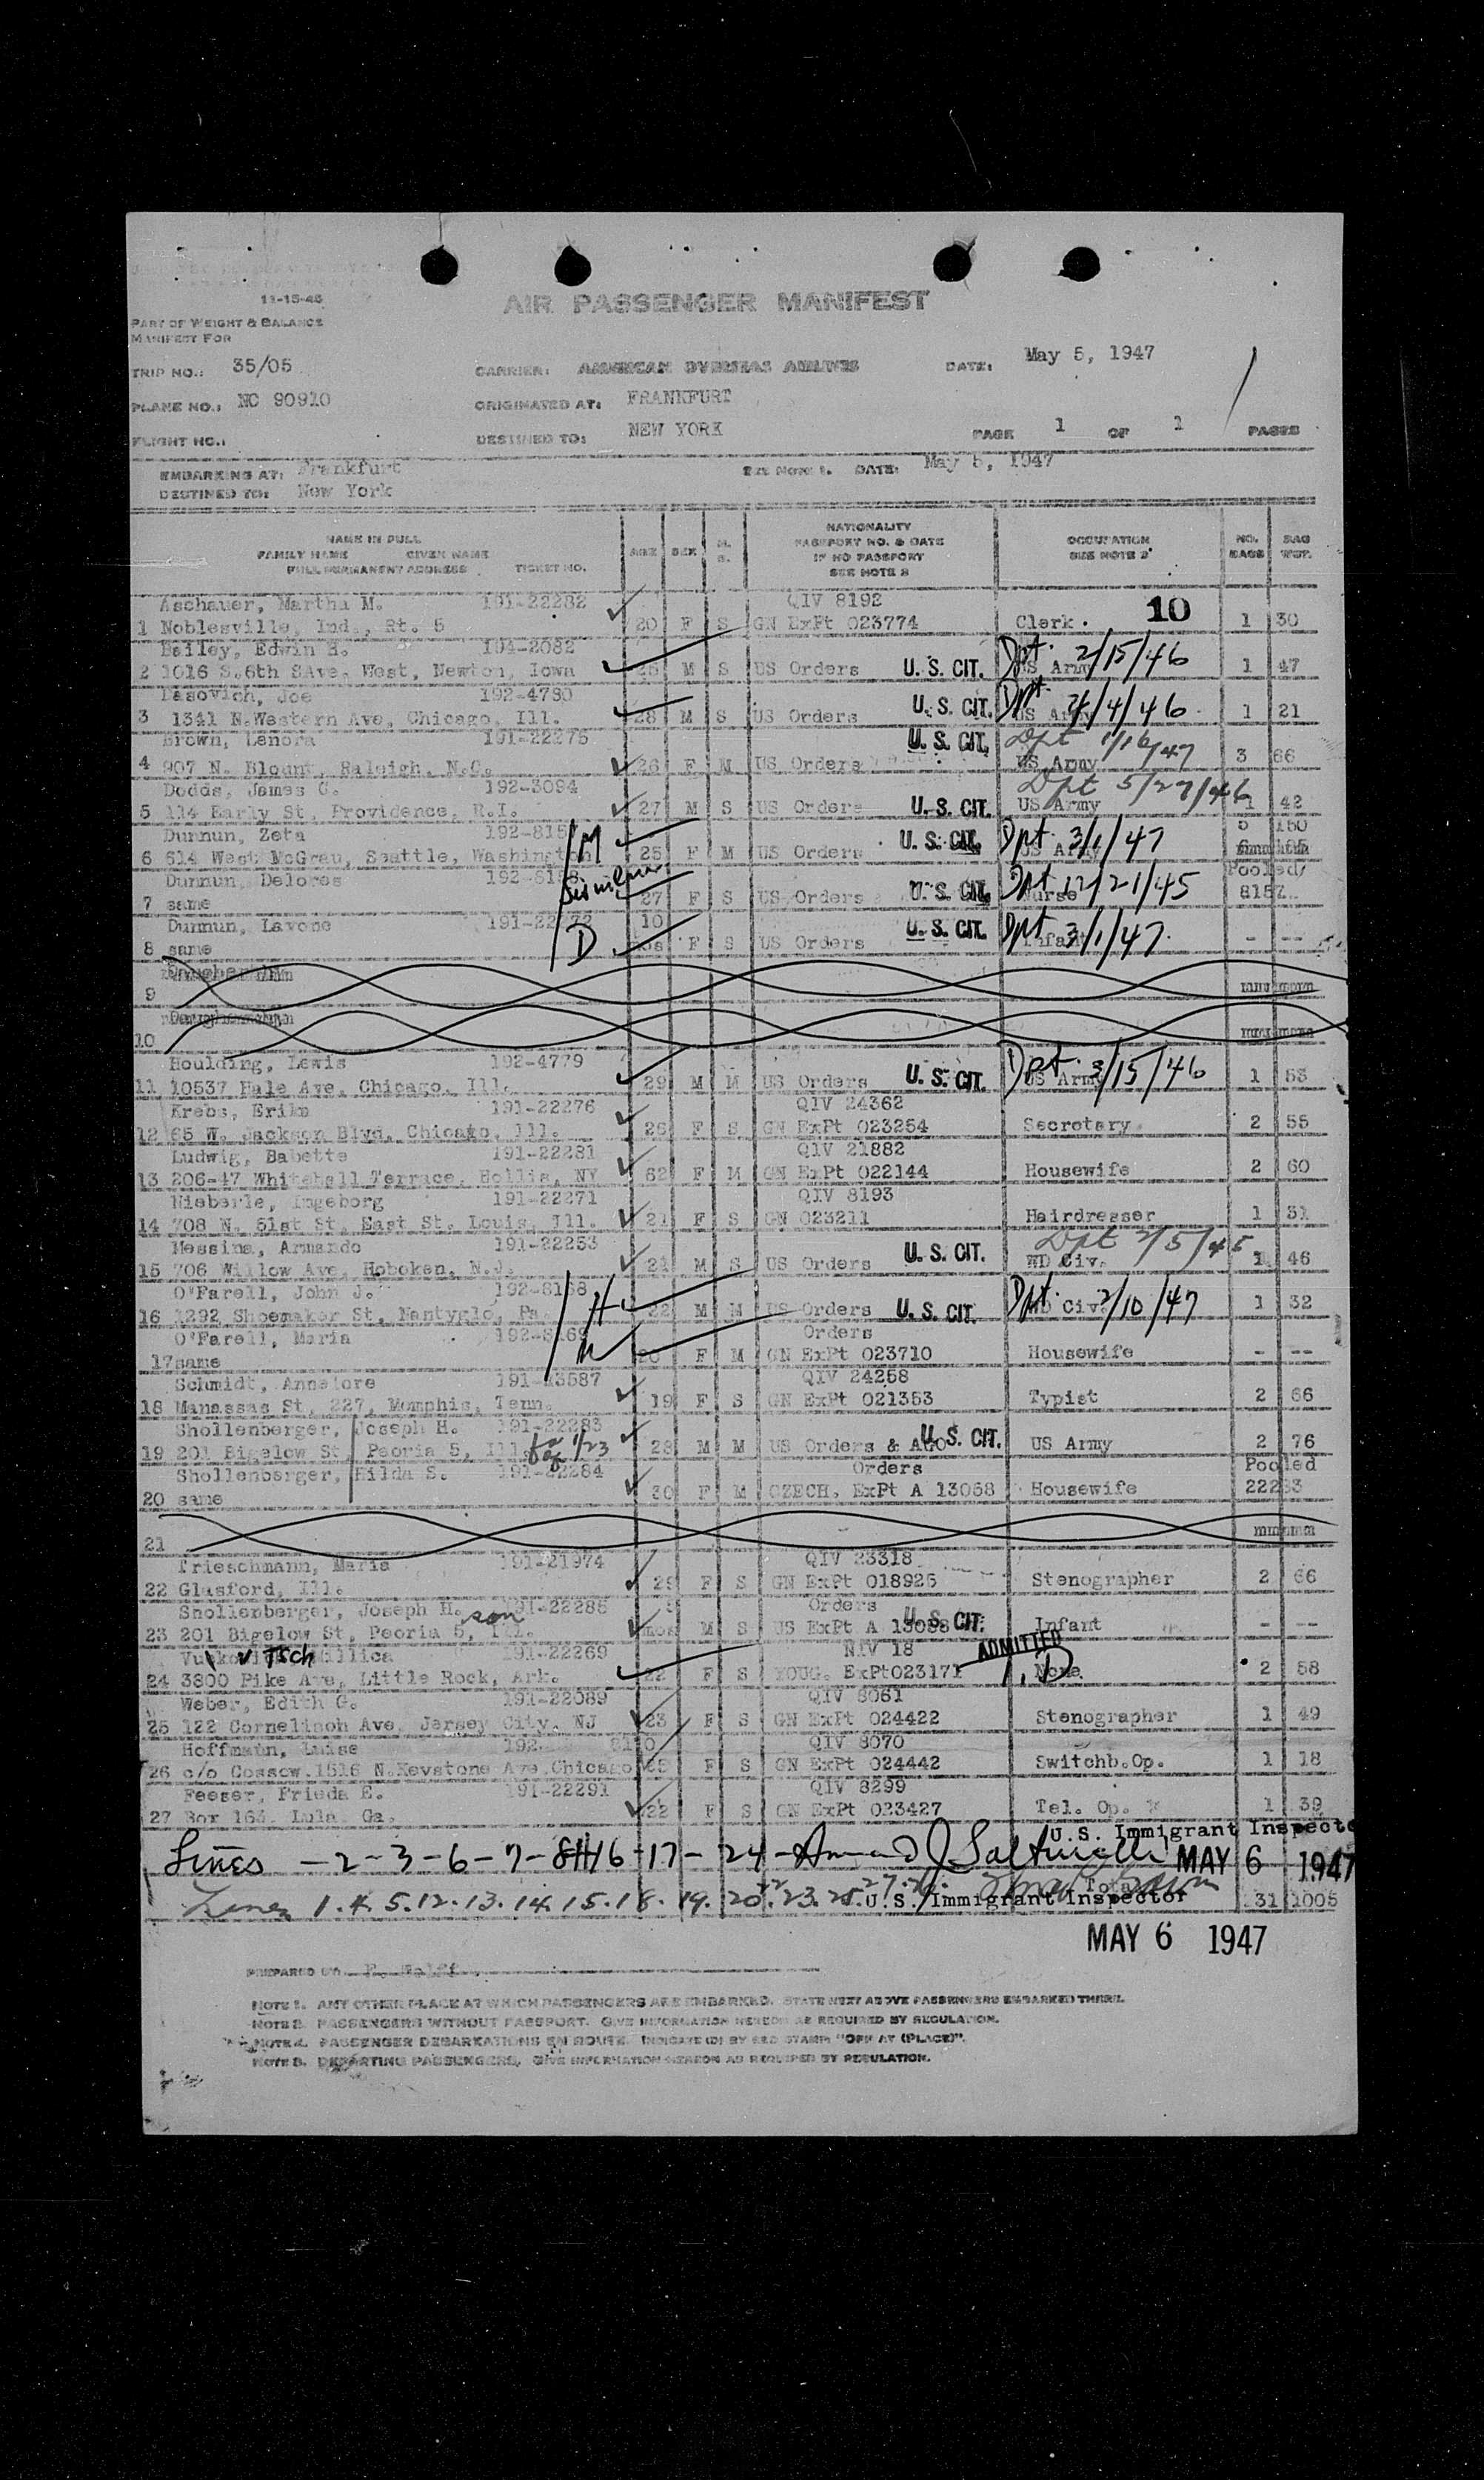 11-15-45
AIR PASSENGER MANIFEST
PART OF WEIGHT & BALANCE
MANIFEST FOR
TRIP NO.: 35/05 CARRIER: AMERICAN OVERSEAS AIRLINES DATE: May 5, 1947
PLANE NO.: NC 90910 ORIGINATED AT: FRANKFURT
FLIGHT NO.: DESTINED TO: NEW YORK PAGE 1 OF 1 PAGES
EMBARKING AT: Frankfurt SEE NOTE 1. DATE: May 5, 1947
DESTINED TO: New York
NAME IN FULL
FAMILY NAME GIVEN NAME
FULL PERMANENT ADDRESS TICKET NO.
AGE SEX M. S.
NATIONALITY
PASSPORT NO. & DATE
IF NO PASSPORT
SEE NOTE 2
OCCUPATION
SEE NOTE 2
NO. BAGS
BAG WGT.
Aschauer, Martha M. 191-22282 QIV 8192
1 Noblesville, Ind., Rt. 5 20 F S GN ExPt 023774 Clerk. 10 1 30
Bailey, Edwin H. 194-2082
2 1016 S.6th SAve, West, Newton, Iowa M S US Orders U.S. CIT. US Army Dpt. 2/15/46 1 47
Basovich, Joe 192-4780
3 1341 N.Western Ave, Chicago, Ill. 28 M S US Orders U.S. CIT. US Army Dpt. /4/46 1 21
Brown, Lenora 191-22275
4 907 N. Blount, Raleigh, N.C. 26 F M US Orders U.S. CIT. US Army Dpt 1/16/47 3 66
Dodds, James G. 192-3094
5 114 Early St, Providence, R.I. 27 M S US Orders U.S. CIT. US Army Dpt 5/27/46 1 42
Dunnun, Zeta 192-815 M
6 614 West McGraw, Seattle, Washington 25 F M US Orders U.S. CIT. US Army Dpt 3/1/47 5 150
Dunnun, Delores 192-8158 Pooled/
7 same 27 F S US Orders U.S. CIT. Nurse Dpt 12/21/45 8157
Dunnun, Lavone 191-22272 10
8 same D mos F S US Orders U.S. CIT. Infant Dpt 3/1/47 - --
9
10
Houlding, Lewis 192-4779
11 10537 Hale Ave, Chicago, Ill. 29 M M US Orders U.S. CIT. US Army Dpt. 3/15/46 1 53
Krebs, Erika 191-22276 QIV 24362
12 65 W. Jackson Blvd, Chicago, Ill. 26 F S GN ExPt 023254 Secretary 2 55
Ludwig, Babette 191-22281 QIV 21882
13 206-47 Whitehall Terrace, Hollis, NY 62 F M GN ExPt 022144 Housewife 2 60
Nieberle, Ingeborg 191-22271 QIV 8193
14 708 N. 51st St, East St. Louis, Ill. 21 F S GN 023211 Hairdresser 1 31
Messina, Armando 191-22253
15 706 Willow Ave, Hoboken, N.J. 21 M S US Orders U.S. CIT. WD Civ. Dpt /5/45 1 46
O'Farell, John J. 192-8168 H
16 1292 Shoemaker St, Nantyglo, Pa. 22 M M US Orders U.S. CIT. WD Civ. Dpt. 2/10/47 1 32
O'Farell, Maria 192-8169 W Orders
17 same 20 F M GN ExPt 023710 Housewife - --
Schmidt, Annelore 191-23587 QIV 24258
18 Manassas St, 227, Memphis, Tenn. 19 F S GN ExPt 021353 Typist 2 66
Shollenberger, Joseph H. 191-22283
19 201 Bigelow St, Peoria 5, Ill. 28 M M US Orders & AGO U.S. CIT. US Army 2 76
Shollenberger, Hilda S. 191-22284 Orders Pooled
20 same 30 F M CZECH. ExPt A 13058 Housewife 22283
21
Trieschmann, Maria 191-21974 QIV 23318
22 Glasford, Ill. F S GN ExPt 018925 Stenographer 2 66
Shollenberger, Joseph H. son 191-22285 Orders
23 201 Bigelow St, Peoria 5, Ill. mos M S US ExPt A 13058 U.S. CIT. Infant - --
Millica 191-22269 NIV 18 ADMITTED
24 3800 Pike Ave, Little Rock, Ark. 22 F S YOUG. ExPt023171 None 2 58
Weber, Edith G. 191-22089 QIV 8061
25 122 Cornelison Ave, Jersey City, NJ 23 F S GN ExPt 024422 Stenographer 1 49
Hoffmann, Luise 192- 8170 QIV 8070
26 c/o Cossow.1516 N.Keystone Ave.Chicago F S GN ExPt 024442 Switchb.Op. 1 18
Feeser, Frieda E. 191-22291 QIV 8299
27 Box 163. Lula. Ga. 22 F S GN ExPt 023427 Tel. Op. 1 39
U.S. Immigrant Inspector
Lines - 2-3-6-7-8-11-16-17-24- MAY 6 1947
Total
Lines 1.4.5.12.13.14.15.18.19.20.22.23.25. U.S. Immigrant Inspector 31 1005
MAY 6 1947
PREPARED BY
NOTE 1. ANY OTHER PLACE AT WHICH PASSENGERS ARE EMBARKED. STATE NEXT ABOVE PASSENGERS EMBARKED THERE.
NOTE 2. PASSENGERS WITHOUT PASSPORT. GIVE INFORMATION HEREON AS REQUIRED BY REGULATION.
NOTE 4. PASSENGER DEBARKATIONS EN ROUTE. INDICATE (D) BY RED STAMP "OFF AT (PLACE)".
NOTE 5. DEPARTING PASSENGERS, GIVE INFORMATION HEREON AS REQUIRED BY REGULATION.